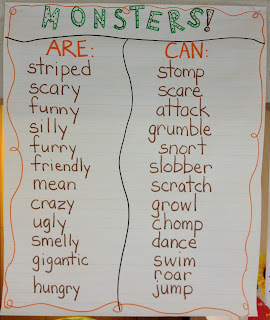 MONSTERS!
ARE:
striped
scary
funny
silly
furry
friendly
mean
crazy
ugly
smelly
gigantic
hungry
CAN:
stomp
scare
attack
grumble
snort
slobber
scratch
growl
chomp
dance
swim
roar
jump